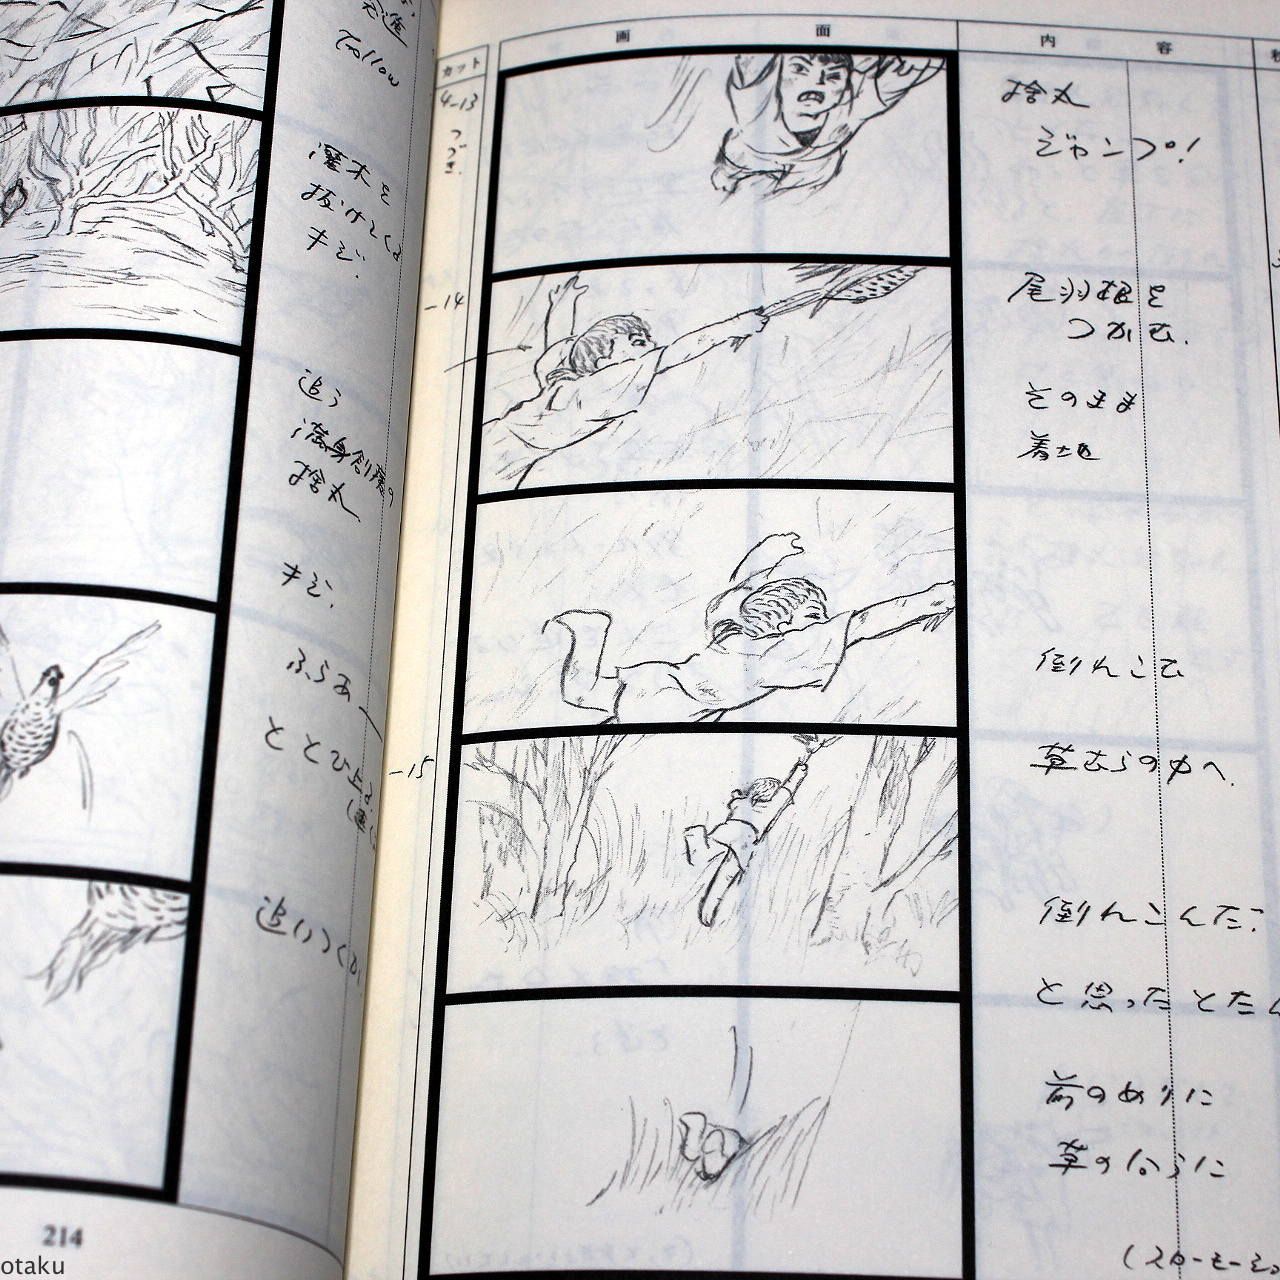 Follow
灌木を
抜けてくる
キジ.
追う
満身創痍の
捨丸
キジ.
ふらあー
ととび上る
追いつくが
214
otaku
カット
画面
内容
4-13
つづき.
捨丸
ジャンプ!
-14
尾羽根を
つかむ.
そのまま
着地
倒れこむ
-15
草むらの中へ.
倒れこんだ?
と思ったとたん
前のめりに
草の向うに
(スローモーショ